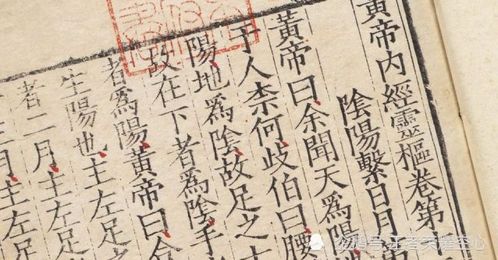 黃帝内經靈樞卷第
陰陽繫日月
黃帝曰余聞天爲陽
于人柰何歧伯曰腰
陽地爲陰故足之十
故在下者爲陰手
者爲陽黃帝曰合
生陽也主左足
者二月主左足
月主左足